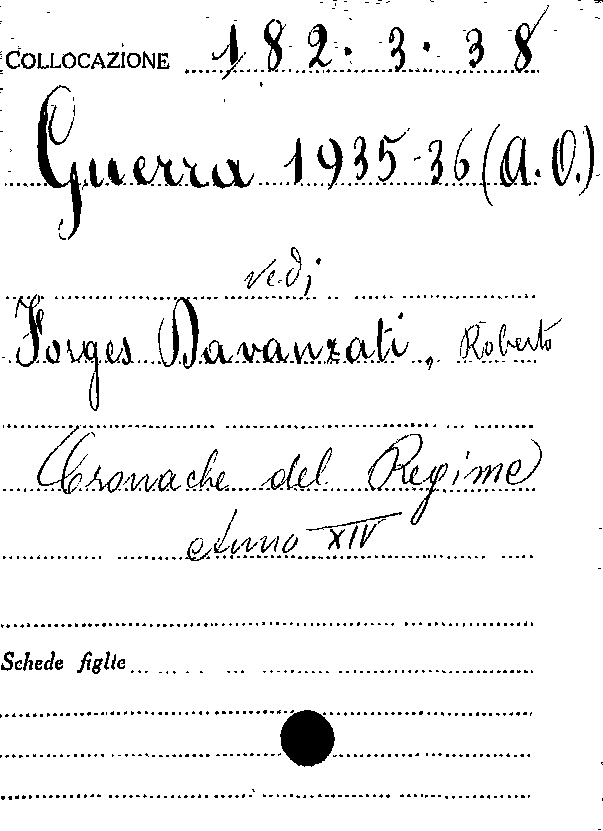 COLLOCAZIONE 182.3.38
Guerra 1935-36 (A.O.)
vedi
Forges Davanzati, Roberto
Cronache del Regime
Anno XIV
Schede figlie